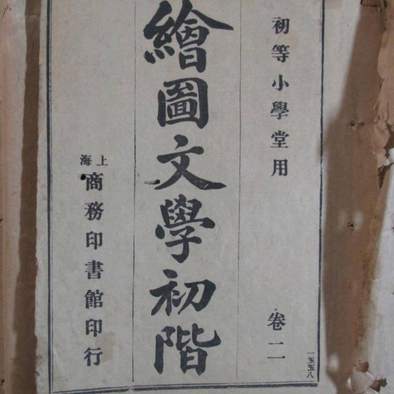 初等小學堂用
卷二
繪圖文學初階
上海
商務印書館印行
一五五八